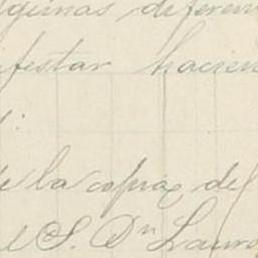 algunas diferen
ifestar hacien
:
de la copia del
el S. Dn Lauro